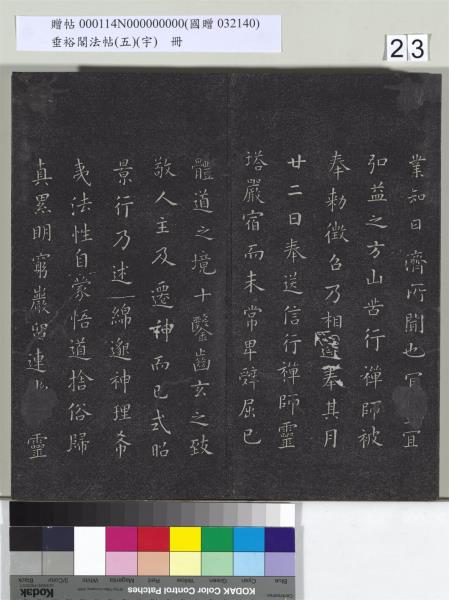 贈帖 000114N000000000(國贈 032140)
垂裕閣法帖(五)(宇) 冊
23
業知日濟所聞也冥 宜
弘益之方山苦行禪師被
奉勅徵召乃相 奉其月
廿二日奉送信行禪師靈
塔巖宿而未常卑辭屈已
體道之境十 鑿齒玄之致
敬人主及遷神而已式昭
景行乃述 綿邈神理希
夷法性自蒙悟道捨俗歸
真累明窮巖留連 靈
Blue
Cyan
Green
Yellow
Red
Magenta
White
3/Color
Black
KODAK Color Control Patches
Kodak